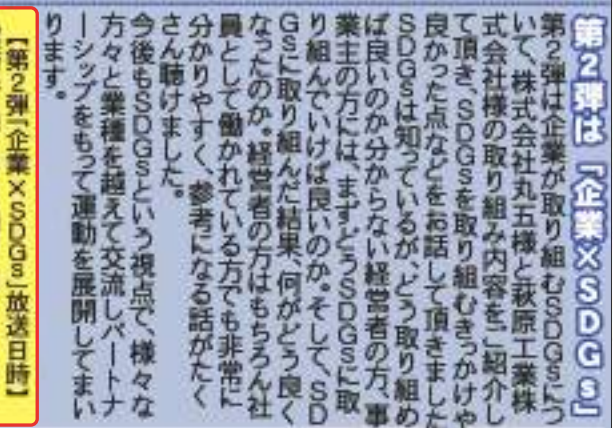 第2弾は『企業×SDGs』
第2弾は企業が取り組むSDGsにつ
いて、株式会社丸五様と萩原工業株
式会社様の取り組み内容をご紹介し
て頂き、SDGsを取り組むきっかけや
良かった点などをお話して頂きました。
SDGsは知っているが、どう取り組め
ば良いのか分からない経営者の方、事
業主の方には、まずどうSDGsに取
り組んでいけば良いのか。そして、SD
Gsに取り組んだ結果、何がどう良く
なったのか。経営者の方はもちろん社
員として働かれている方でも非常に
分かりやすく、参考になる話がたく
さん聴けました。
今後もSDGsという視点で、様々な
方々と業種を越えて交流しパートナ
ーシップをもって運動を展開してまい
ります。
【第2弾『企業×SDGs』放送日時】